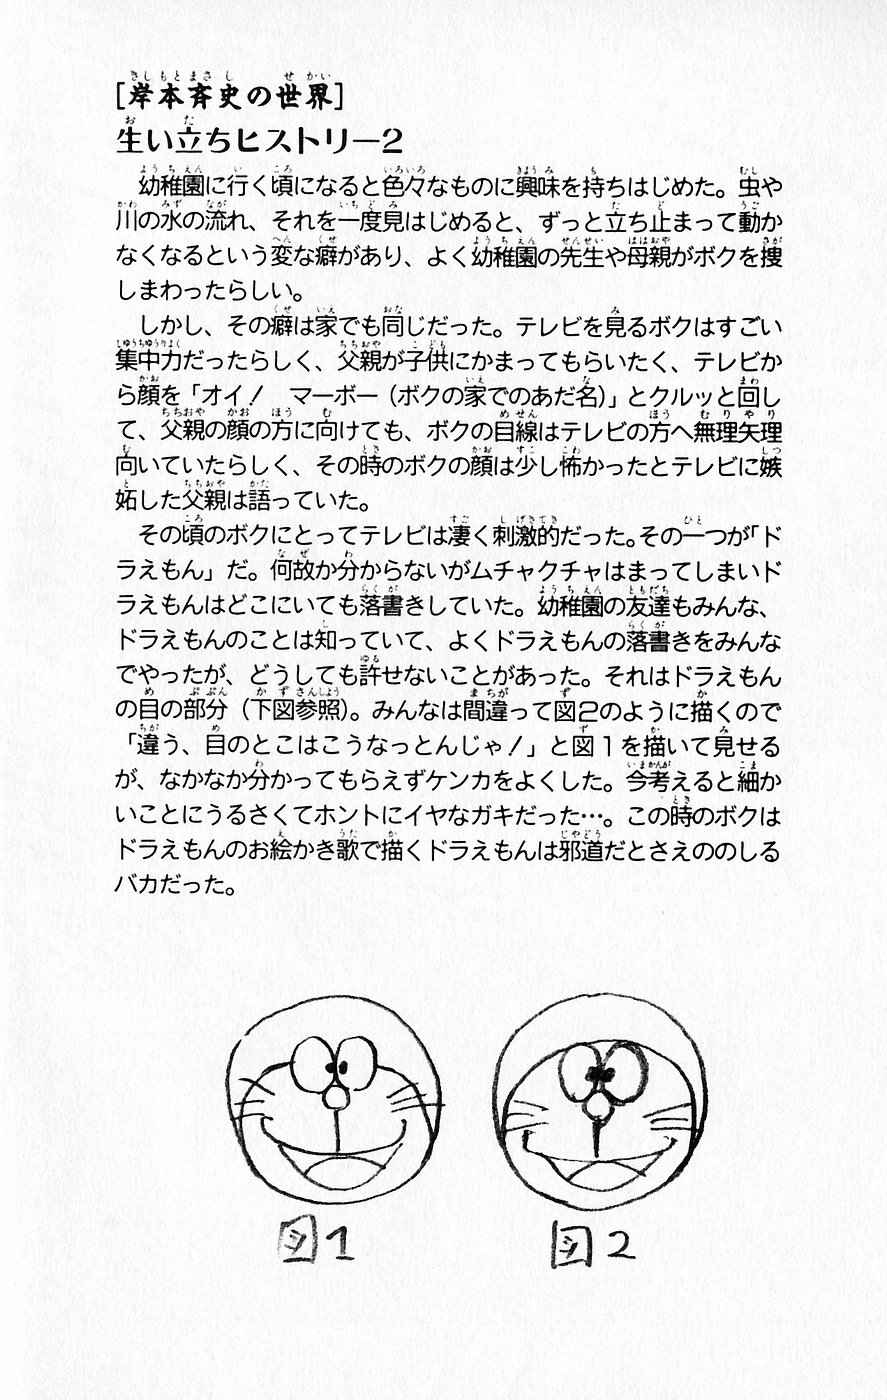 [岸本斉史の世界]
生い立ちヒストリー2
幼稚園に行く頃になると色々なものに興味を持ちはじめた。虫や
川の水の流れ、それを一度見はじめると、ずっと立ち止まって動か
なくなるという変な癖があり、よく幼稚園の先生や母親がボクを捜
しまわったらしい。
しかし、その癖は家でも同じだった。テレビを見るボクはすごい
集中力だったらしく、父親が子供にかまってもらいたく、テレビか
ら顔を「オイ！　マーボー（ボクの家でのあだ名）」とクルッと回し
て、父親の顔の方に向けても、ボクの目線はテレビの方へ無理矢理
向いていたらしく、その時のボクの顔は少し怖かったとテレビに嫉
妬した父親は語っていた。
その頃のボクにとってテレビは凄く刺激的だった。その一つが「ド
ラえもん」だ。何故か分からないがムチャクチャはまってしまいド
ラえもんはどこにいても落書きしていた。幼稚園の友達もみんな、
ドラえもんのことは知っていて、よくドラえもんの落書きをみんな
でやったが、どうしても許せないことがあった。それはドラえもん
の目の部分（下図参照）。みんなは間違って図2のように描くので
「違う、目のとこはこうなっとんじゃ！」と図1を描いて見せる
が、なかなか分かってもらえずケンカをよくした。今考えると細か
いことにうるさくてホントにイヤなガキだった…。この時のボクは
ドラえもんのお絵かき歌で描くドラえもんは邪道だとさえののしる
バカだった。
図1
図2